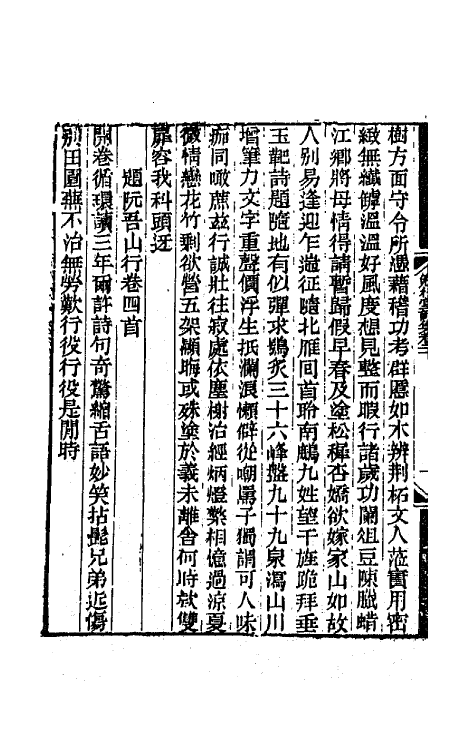 樹方面守令所憑藉稽功考群慝如木辨荆柘文人蒞實用密
緻無纖罅溫溫好風度想見整而暇行諸歲功闌俎豆陳臘蜡
江鄉將母情得請暫歸假早春及塗松穉杏嬌欲嫁家山如故
人别易逢迎乍遄征隨北雁回首聆南鷓九姓望干旌跪拜垂
玉靶詩題隨地有似彈求鴞炙三十六峰盤九十九泉瀉山川
增筆力文字重聲價浮生抵瀾浪嬾僻從嘲罵子獨謂可人味
痂同噉蔗茲行誠壯往寂處依塵榭治經炳燈檠相憶過涼夏
微情戀花竹剩欲營五架顯晦或殊塗於義未離舍何時欵雙
扉容我科頭迓
題阮吾山行卷四首
開卷循環讀三年爾許詩句奇驚縮舌語妙笑拈髭兄弟近傷
别田園蕪不治無勞歎行役行役是閒時